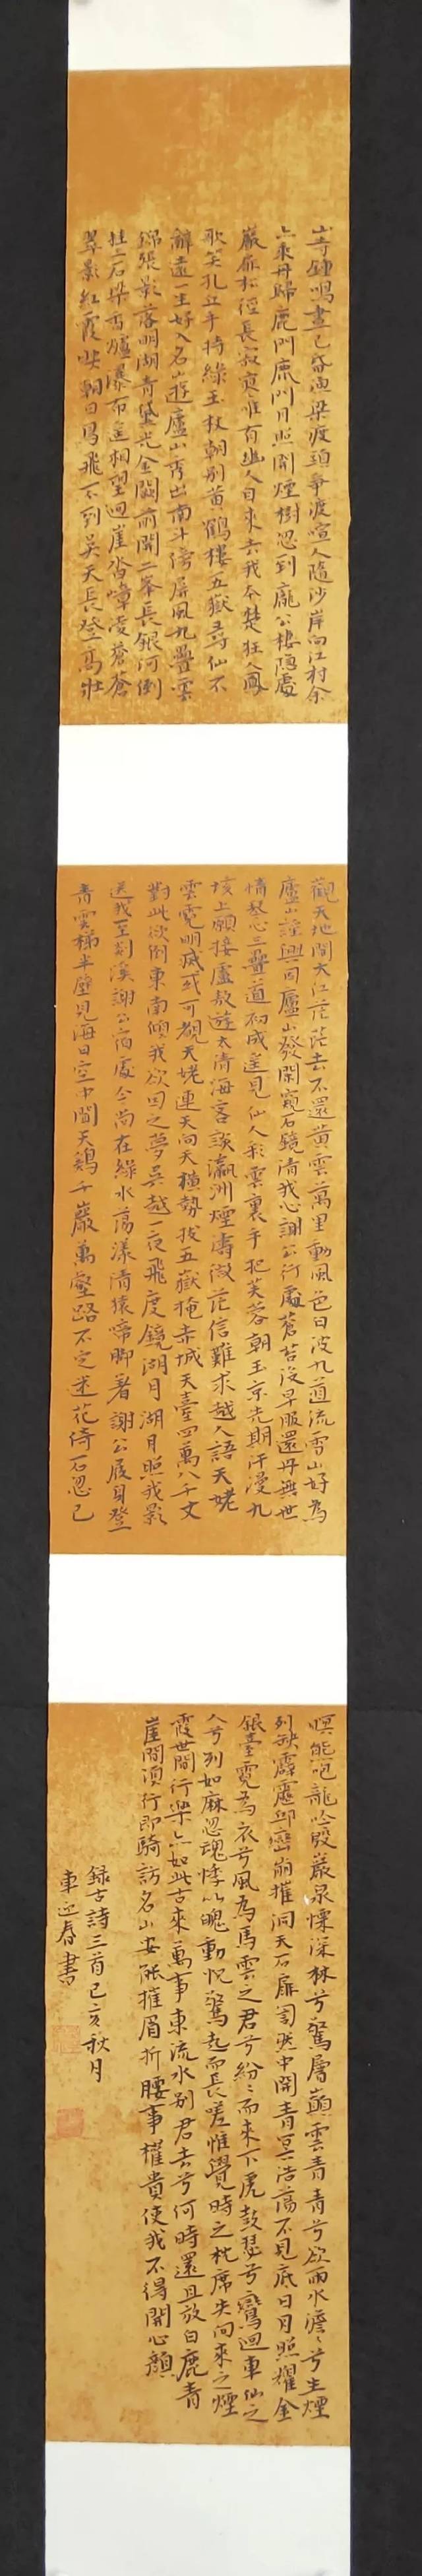 山寺鐘鳴晝已昏漁梁渡頭爭渡喧人隨沙岸向江村余
亦乘舟歸鹿門鹿門月照開煙樹忽到龐公棲隱處
巖扉松徑長寂寞唯有幽人自來去我本楚狂人鳳
歌笑孔丘手持綠玉杖朝別黃鶴樓五嶽尋仙不
辭遠一生好入名山遊廬山秀出南斗傍屏風九疊雲
錦張影落明湖青黛光金闕前開二峯長銀河倒
挂三石梁香爐瀑布遙相望迴崖沓嶂凌蒼蒼
翠影紅霞映朝日鳥飛不到吳天長登高壯
觀天地間大江茫茫去不還黃雲萬里動風色白波九道流雪山好為
廬山謠興因廬山發閑窺石鏡清我心謝公行處蒼苔沒早服還丹無世
情琴心三疊道初成遙見仙人彩雲裏手把芙蓉朝玉京先期汗漫九
垓上願接盧敖遊太清海客談瀛洲煙濤微茫信難求越人語天姥
雲霓明滅或可覩天姥連天向天橫勢拔五嶽掩赤城天臺四萬八千丈
對此欲倒東南傾我欲因之夢吳越一夜飛度鏡湖月湖月照我影
送我至剡溪謝公宿處今尚在綠水蕩漾清猿啼腳著謝公屐身登
青雲梯半壁見海日空中聞天鷄千巖萬壑路不定迷花倚石忽已
暝熊咆龍吟殷巖泉慄深林兮驚層巔雲青青兮欲雨水澹〻兮生煙
列缺霹靂邱巒崩摧洞天石扉訇然中開青冥浩蕩不見底日月照耀金
銀臺霓為衣兮風為馬雲之君兮紛〻而來下虎鼓瑟兮鸞迴車仙之
人兮列如麻忽魂悸以魄動怳驚起而長嗟惟覺時之枕席失向來之煙
霞世間行樂亦如此古來萬事東流水別君去兮何時還且放白鹿青
崖間須行即騎訪名山安能摧眉折腰事權貴使我不得開心顏
録古詩三首己亥秋月
車迎春書